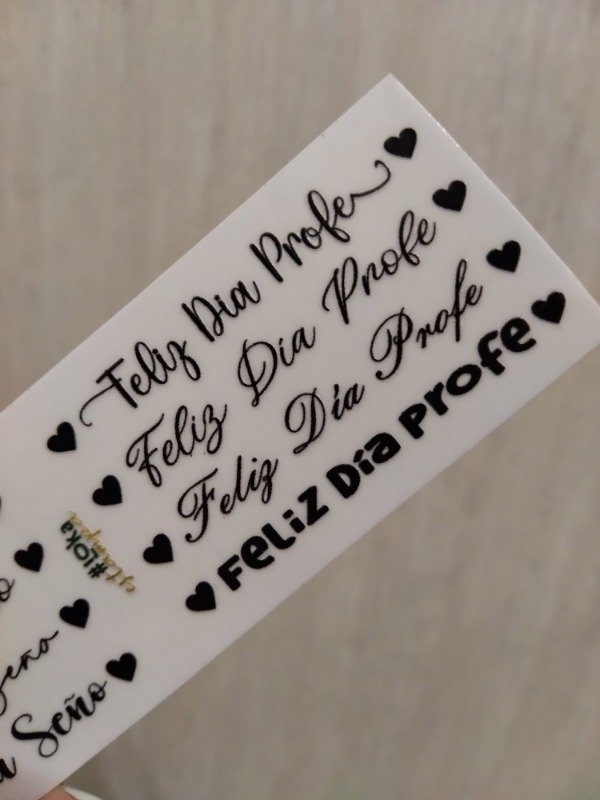 Feliz Dia Profe
Feliz Dia Profe
Feliz Día Profe
Feliz Día Profe
#LOKA
Seño
Seño